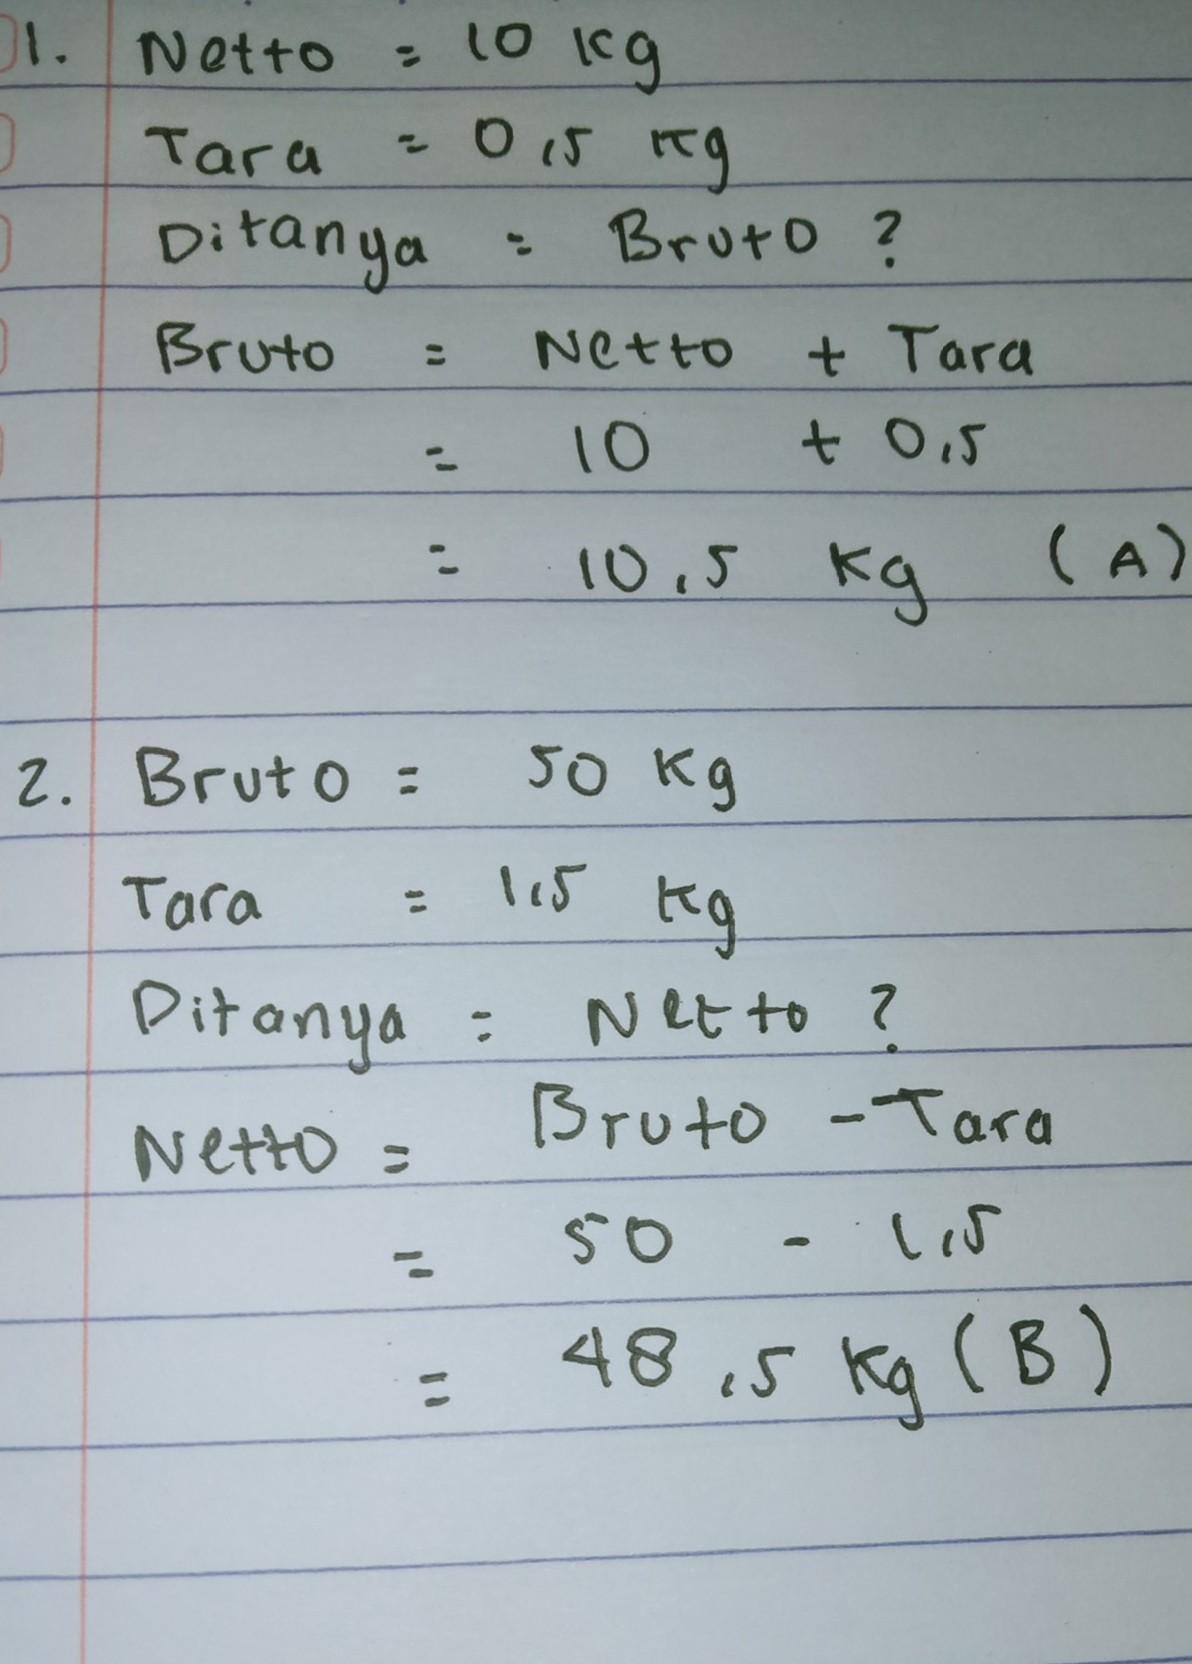 1. Netto = 10 kg
Tara = 0,5 kg
Ditanya = Bruto ?
Bruto = Netto + Tara
= 10 + 0,5
= 10,5 kg (A)
2. Bruto = 50 kg
Tara = 1,5 kg
Ditanya = Netto ?
Netto = Bruto - Tara
= 50 - 1,5
= 48,5 kg (B)